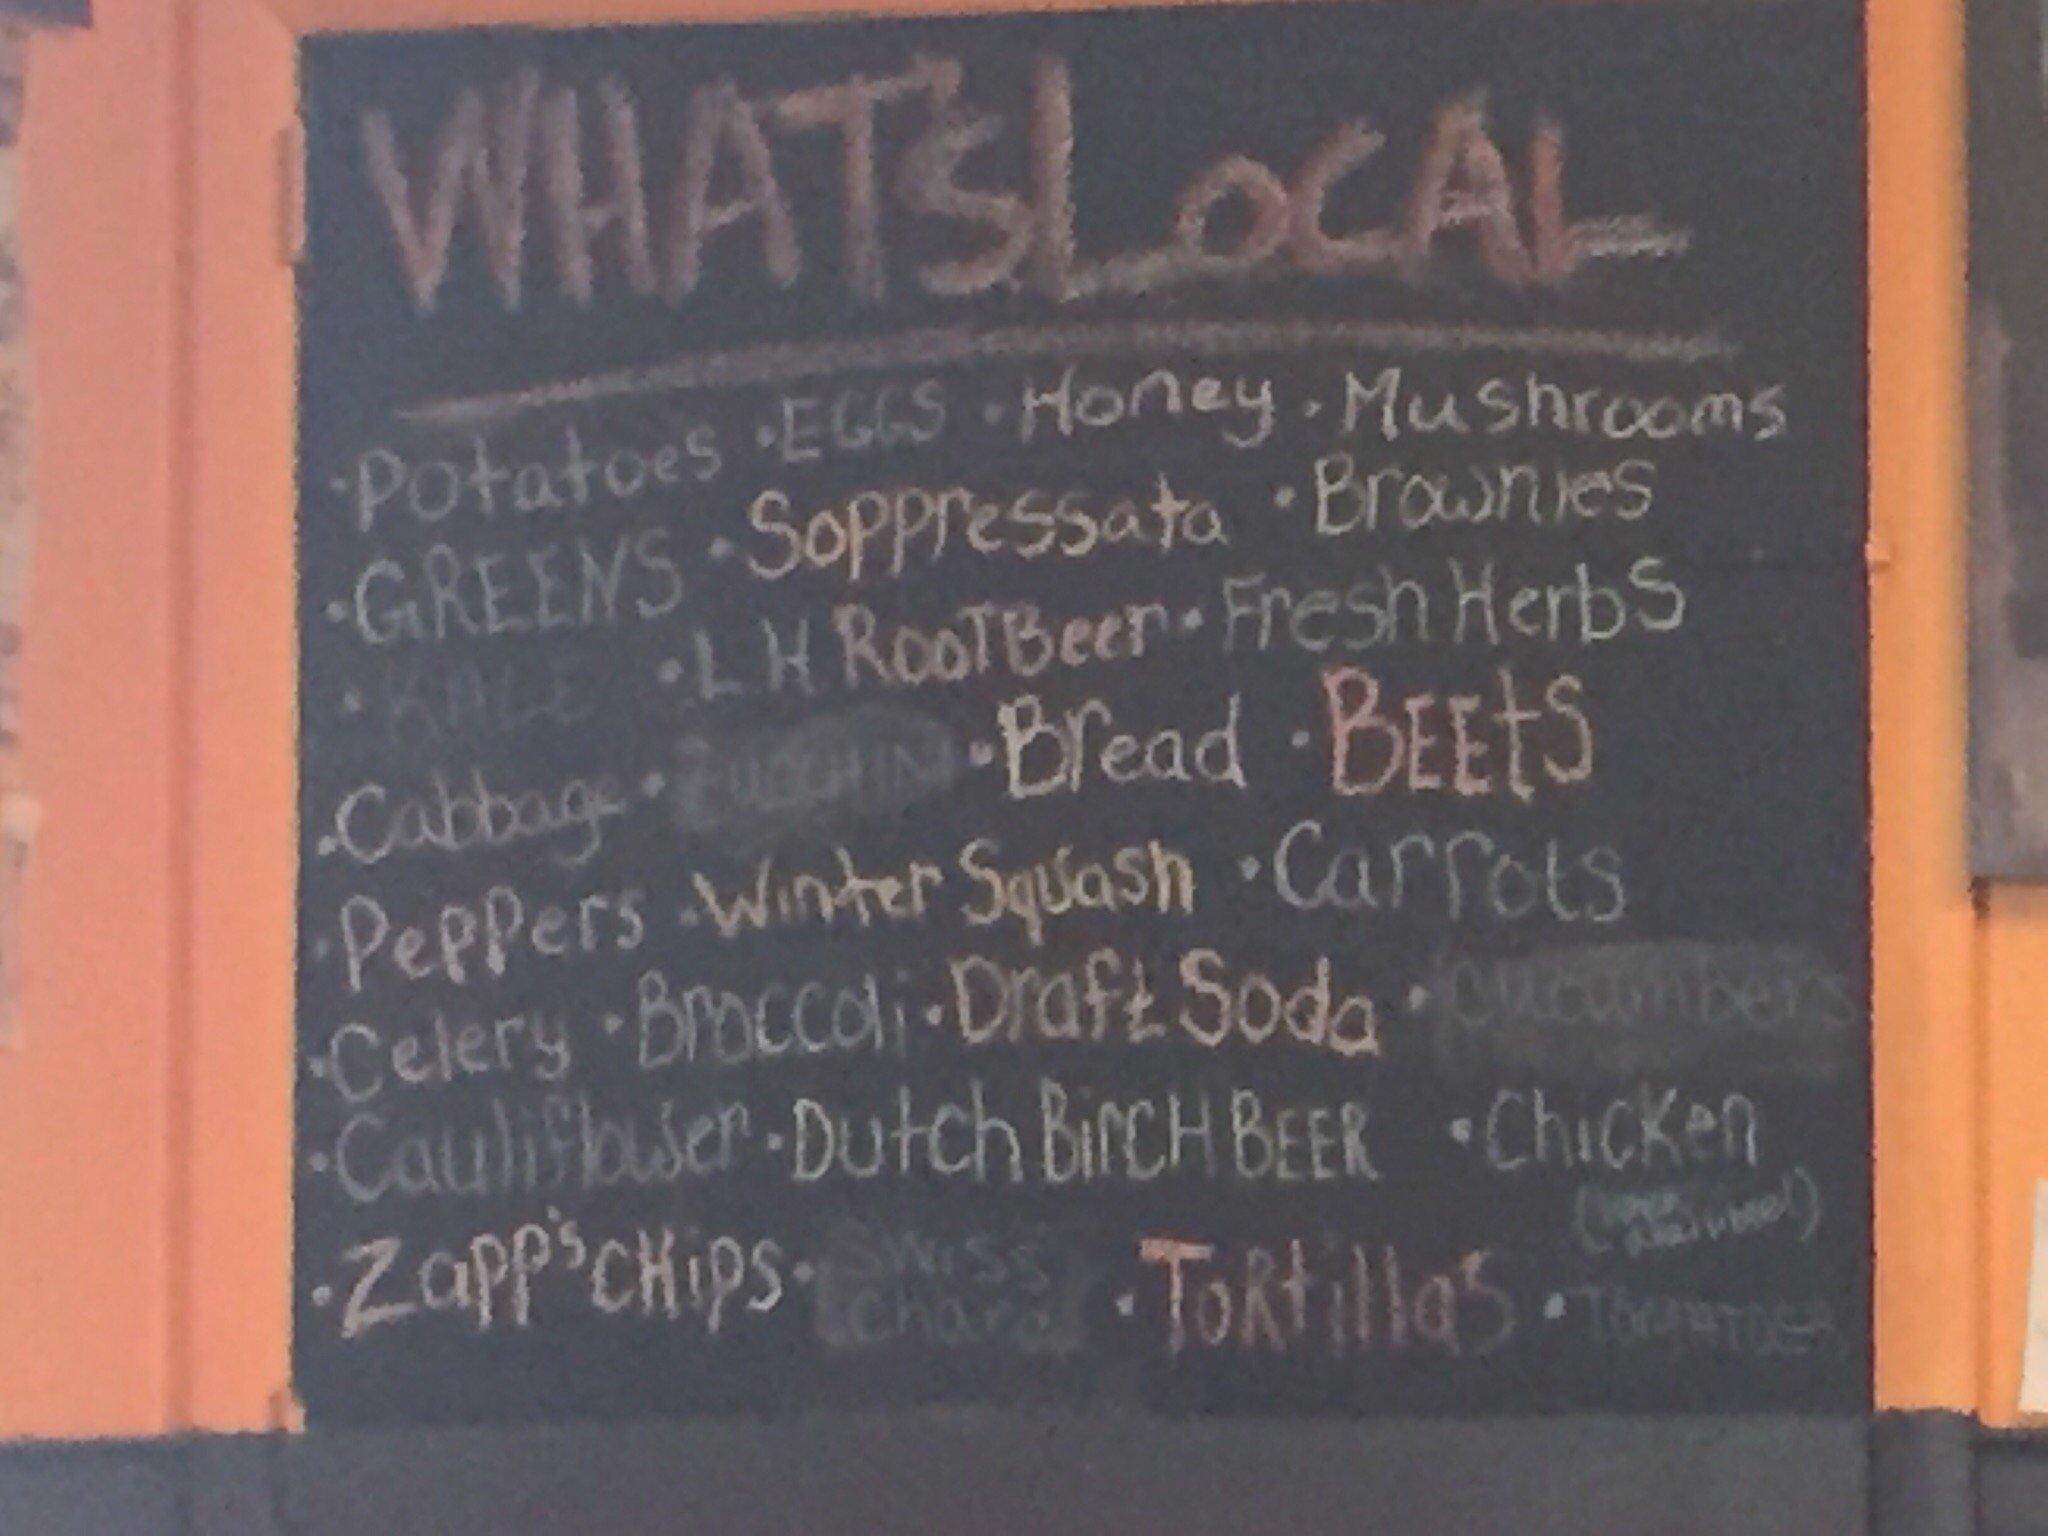 WHAT'S LOCAL
·Potatoes ·EGGS ·Honey ·Mushrooms
·GREENS ·Soppressata ·Brownies
·KALE ·LH ROOT Beer ·Fresh Herbs
·Cabbage ·ZUCCHINI ·Bread ·BEEtS
·Peppers ·Winter Squash ·Carrots
·Celery ·Broccoli ·Draft Soda ·Cucumbers
·Cauliflower ·Dutch BirCH BEER ·Chicken
·Zapp's CHips ·SWiSS Chard ·ToRtillas ·TOMATOES